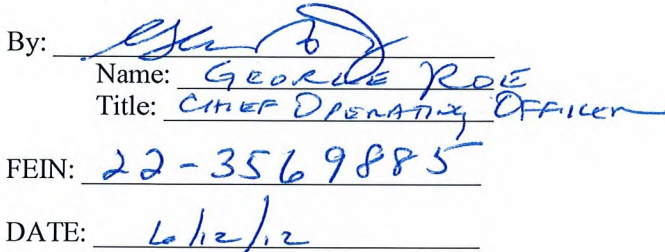 By:
Name: GEORGE ROE
Title: CHIEF OPERATING OFFICER
FEIN: 22-3569885
DATE: 6/12/12